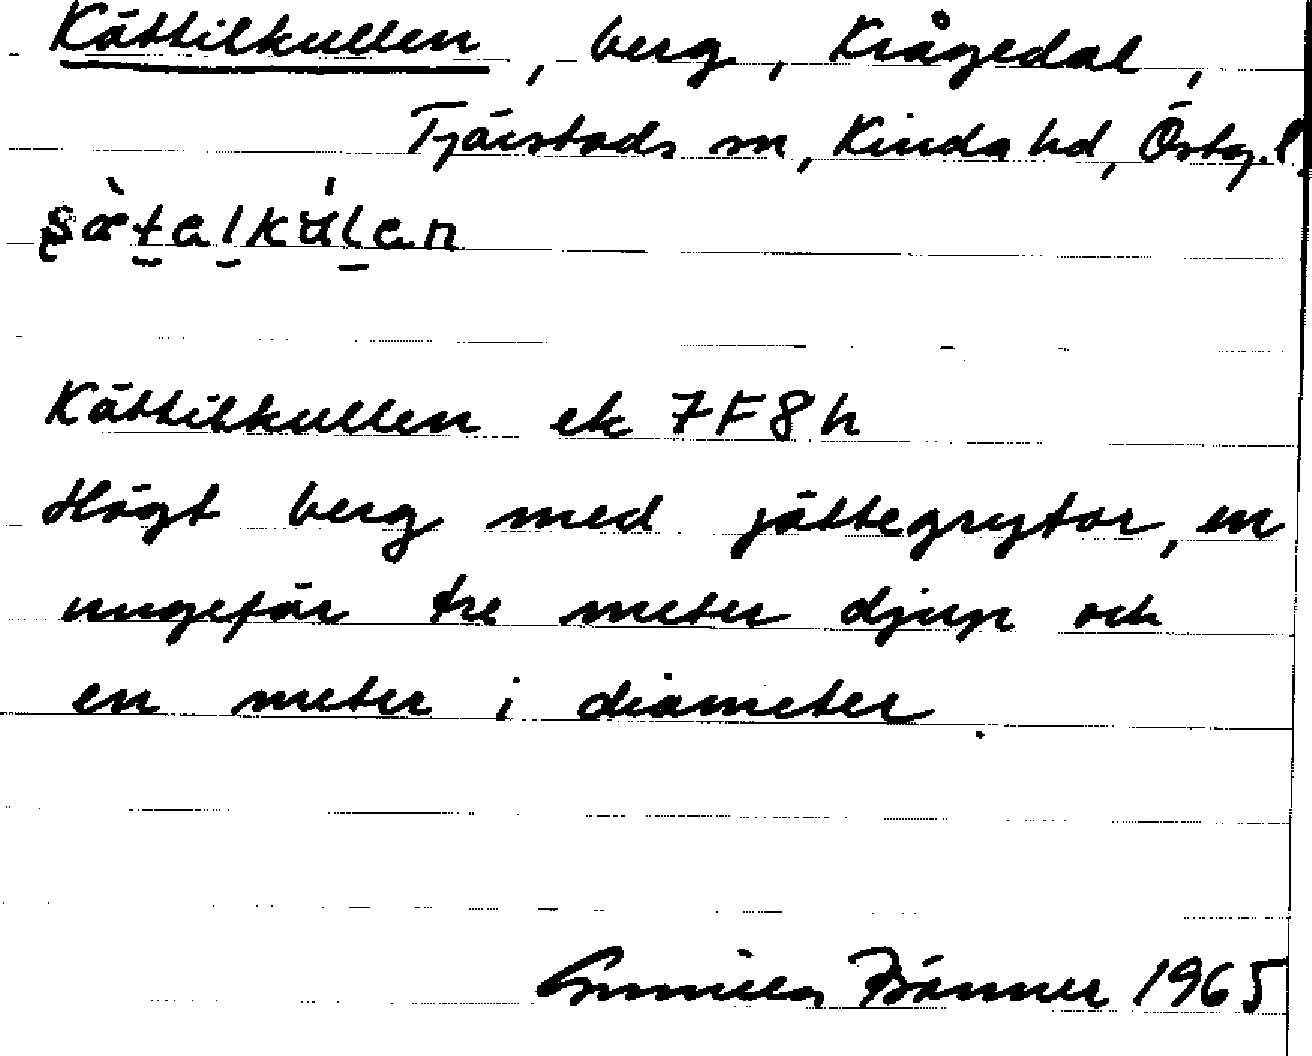 Kättilkullen, berg, Krågedal,
Tjärstads sn, Kinda hd, Östg. l.
Kättilkullen ek 7F8h
Högt berg med jättegrytor, en
ungefär tre meter djup och
en meter i diameter.
Gunilla 1965